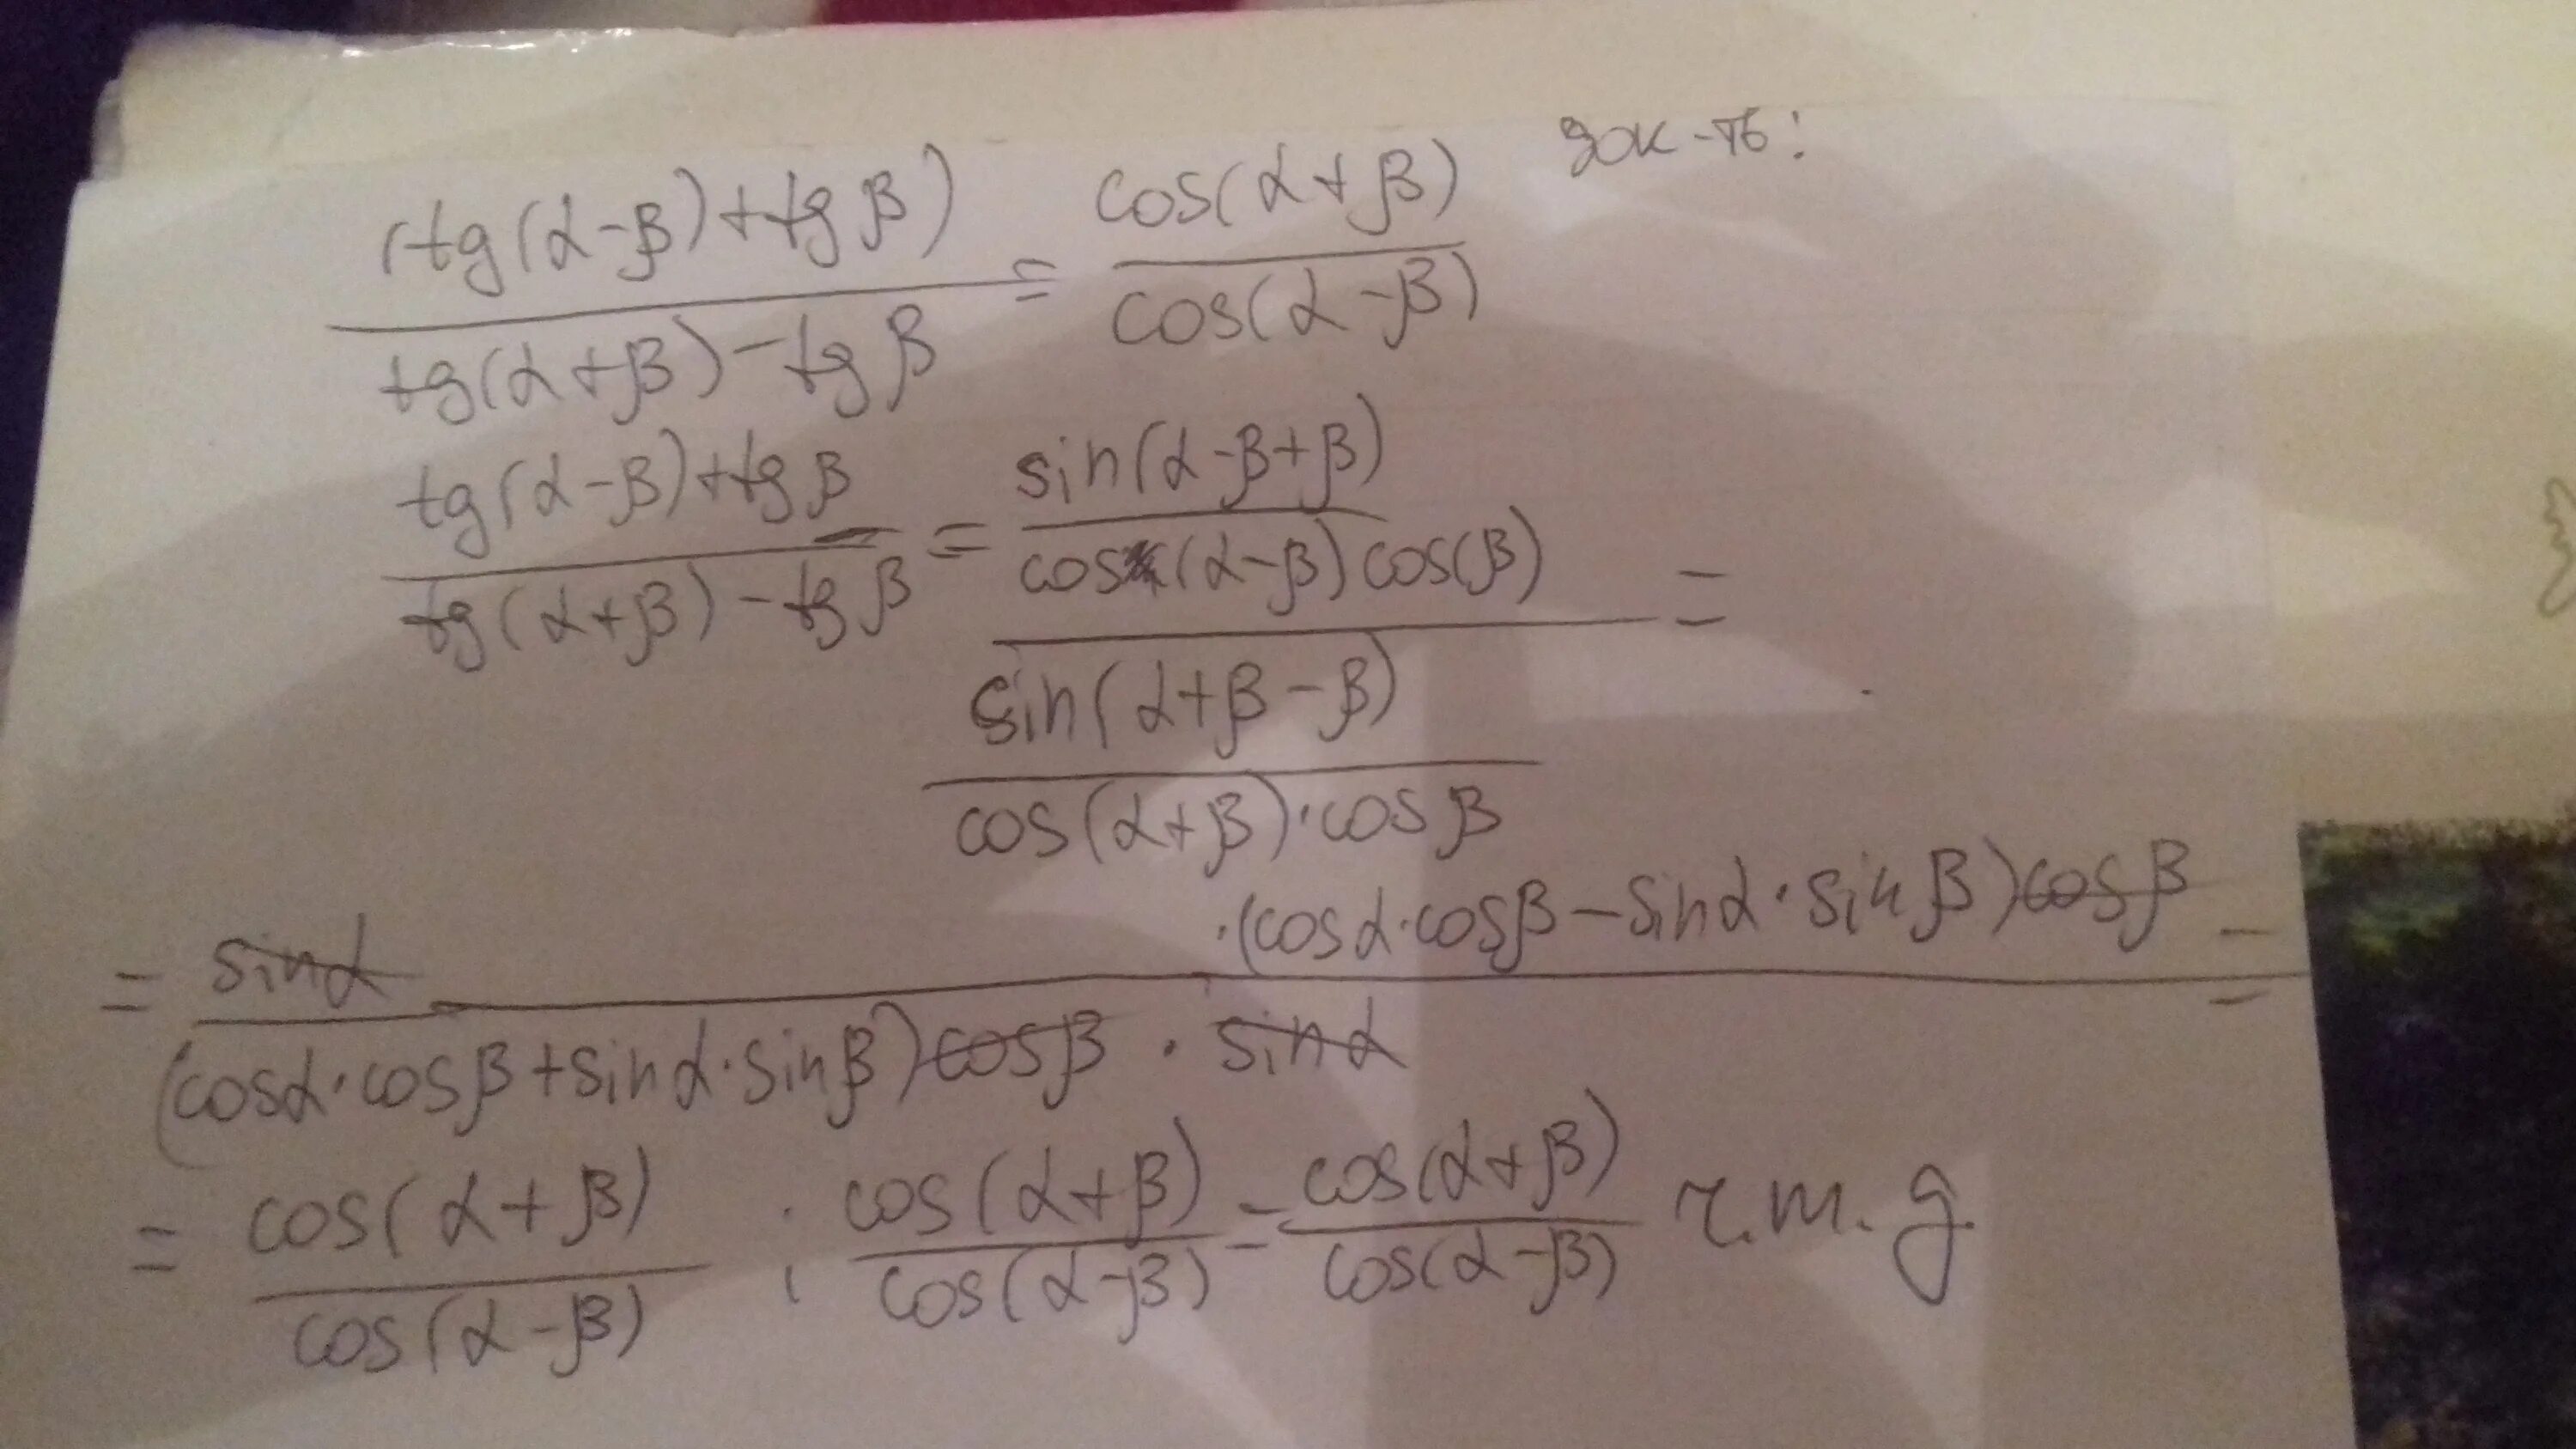 (tg(α-β)+tgβ) / tg(α+β)-tgβ = cos(α+β) / cos(α-β) док-ть:
tg(α-β)+tgβ / tg(α+β)-tgβ = sin(α-β+β) / cos(α-β)cos(β) =
sin(α+β-β) / cos(α+β)·cosβ
= sinα ·(cosα·cosβ-sinα·sinβ)cosβ / (cosα·cosβ+sinα·sinβ)cosβ · sinα =
= cos(α+β) / cos(α-β) ; cos(α+β) / cos(α-β) = cos(α+β) / cos(α-β) ч.т.д.